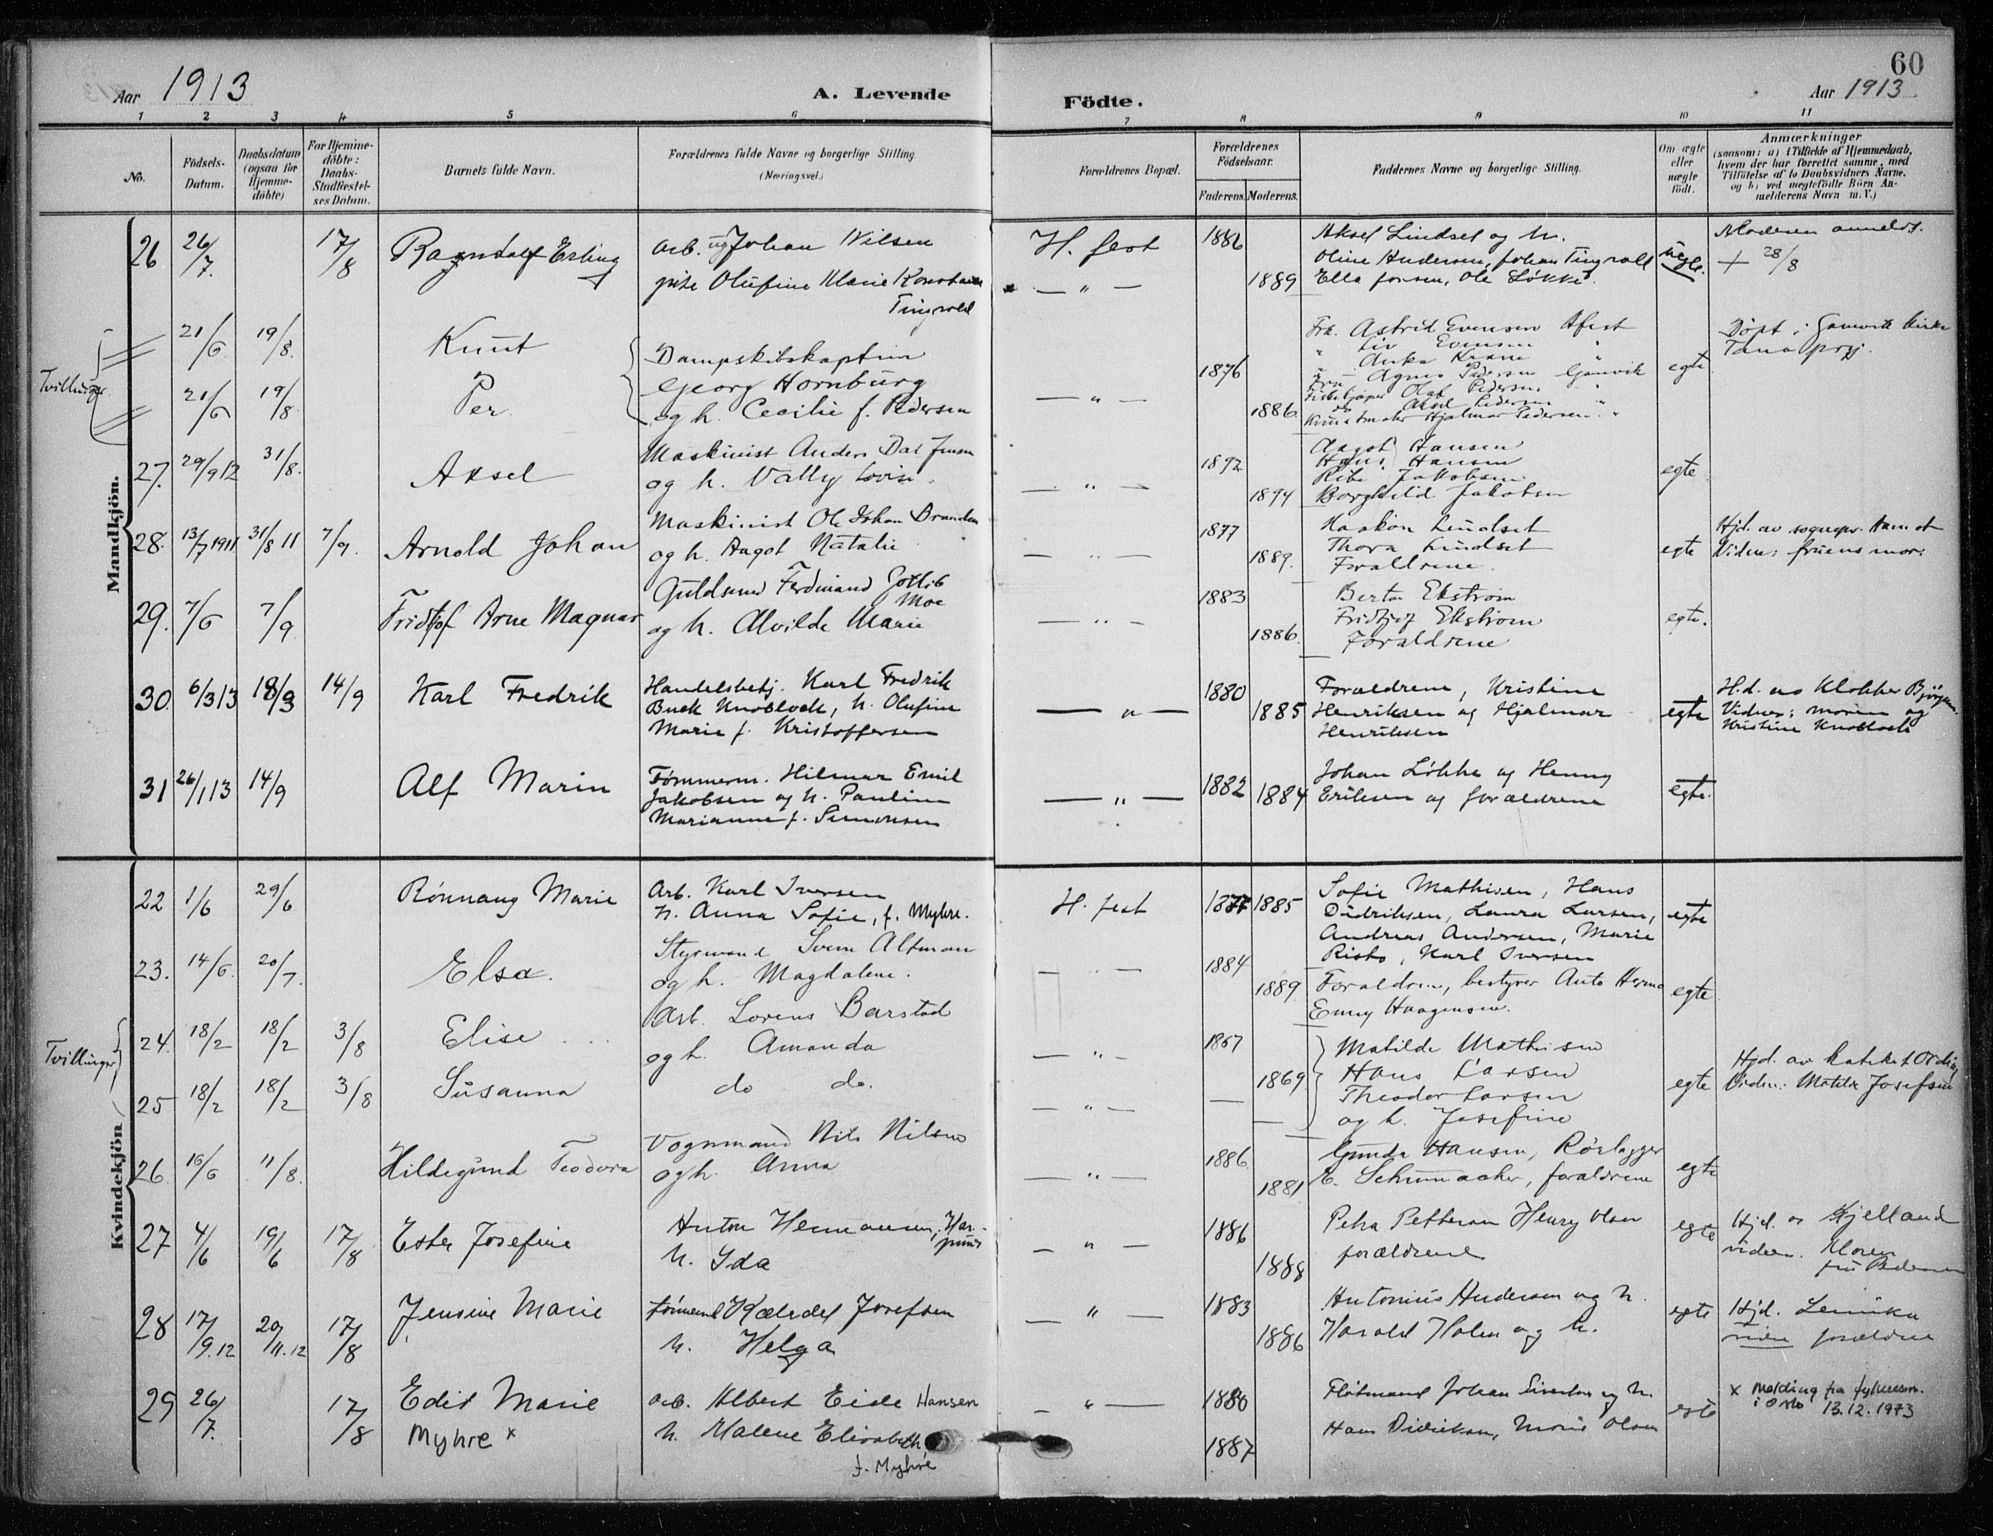 60
Aar 1913
A. Levende
Födte.
Aar 1913
1 2 3 4 5 6 7 8 9 10 11
No.
Födsels-
Datum.
Daabsdatum
(ogsaa for
Hjemme-
döbte)
For Hjemme-
döbte:
Daabs-
Stadfæstel-
ses Datum.
Barnets fulde Navn.
Forældrenes fulde Navne og borgerlige Stilling
(Næringsvei.)
Forældrenes Bopæl.
Forældrenes
Födselsaar.
Faderens. Moderens.
Faddernes Navne og borgerlige Stilling.
Om ægte
eller
uægte
födt.
Anmærkninger
(saasom: a) i Tilfælde af Hjemmedaab,
hvem der har forrettet samme, med
Tilföielse af to Daabsvidners Navne.
og b) ved uægtefödte Börn An-
melderens Navn m. V.)
Mandkjön.
26 26/7. 17/8 Erling
arb. ug Johan Nilsen
pike Olufine Marie
Tingvold
H. fest
— " —
1886
1889
Aksel Lindset og h.
Oline Andersen, Johan Tingvold
Ella Jonsen, Ole Løkke
uegte.
Moderen anmeldt.
+ 28/8
Tvillinger
21/6. 19/8. Knut
21/6 19/8. Per
Dampskibskaptein
Georg Hornburg
og h. Cecilie f. Pedersen
— " —
1876
1886.
Frk. Astrid Evensen Hfest
" Liv Evensen "
" Anka Krane "
Fru Agnes Pedersen Gamvik
Olaf Pedersen "
Aksel Pedersen "
Hjalmar Pedersen "
egte
Døpt i Gamvik kirke
Tana prgj.
27. 29/9 12 31/8. Aksel
Maskinist Anders Dal Jensen
og h. Vally Lovise.
— " —
1892
1894
Aagot Hansen
Hans Hansen
Jakobsen
Borghild Jakobsen
egte
28. 13/7 1911 31/8 11 7/9. Arnold Johan
Maskinist Ole Johan
og h. Aagot Natalie
— " —
1877
1889.
Haakon Lindset
Thora Lindset
Foraldrene.
egte
Hjd. av sognepr.
Vidne: fruens mor.
29. 7/6 7/9 Fridtjof Arne Magnar
Guldsmed Ferdinand Gotlib
Moe
og h. Alvilde Marie
— " —
1883
1886.
Berta Ekstrøm
Fridtjof Ekstrøm
Foraldrene
egte.
30. 6/3 13 18/3 14/9 Karl Fredrik
Handelsbetj. Karl Fredrik
Buck Knoblock, h. Olufine
Marie f. Kristoffersen
— " —
1880
1885
Forældrene, Kristine
Henriksen og Hjalmar
Henriksen
egte
H.d. av Klokker
Vidner: moren og
Kristine Knoblock
31 26/1 13 14/9 Alf Marin
Tømmerm. Hilmar Emil
Jakobsen og h. Pauline
Marianne f. Simonsen
— " —
1882
1884
Johan Løkke og Henny
Eriksen og forældrene
egte.
Kvindekjön
22 1/6 29/6 Rönnaug Marie
Arb. Karl Iversen
h. Anna Sofie, f. Myhre.
H. fest
1877
1885
Sofie Mathisen, Hans
Didriksen, Laura Larsen,
Andreas Andersen, Marie
Risto, Karl Iversen
egte
23. 14/6. 20/7. Elsa.
Altman
og h. Magdalene.
— " —
1884
1889
Foraldrene, bestyrer
Haagensen.
egte
Tvillinger
24. 18/2 18/2 3/8 Elise
Arb. Lorens Barstad
og h. Amanda
— " —
1867
1869
Matilde Mathisen
Hans Larsen
25 18/2 18/2 3/8 Susanna
do do.
— " —
Theodor Larsen
og h. Josefine
egte
Hjd. av
Vidne: Matilde Josefsen
26. 16/6 11/8. Hildegund Teodora
Vognmand Nils Nilsen
og h. Anna
— " —
1886.
1881
Gunda Hansen, Rørlægger
E. Schumacher, foraldrene
egte
27 4/6 19/6 17/8 Ester Josefine
Anton Hermansen,
h. Ida
— " —
1886
1888
Petra Pettersen Henry Olsen
forældrene
egte
Hjd. av Kjelland
vidn. Moren
fru Pedersen
28 17/9.12 20/11.12 17/8 Jensine Marie
Josefsen
h. Helga
— " —
1883
1886
Antonius Andersen og h.
Harald Holen og h.
egte
Hjd.
vidne forældrene
29 26/7. 17/8 Edit Marie
Myhre ×
arb. Albert Eide Hansen
h. Malene Elisabeth,
f. Myhre
— " —
1880
1887
Johan Sivertsen og h.
Hans Didriksen, Olsen
egte
× Melding fra fylkesm.
i Oslo 13.12.1973